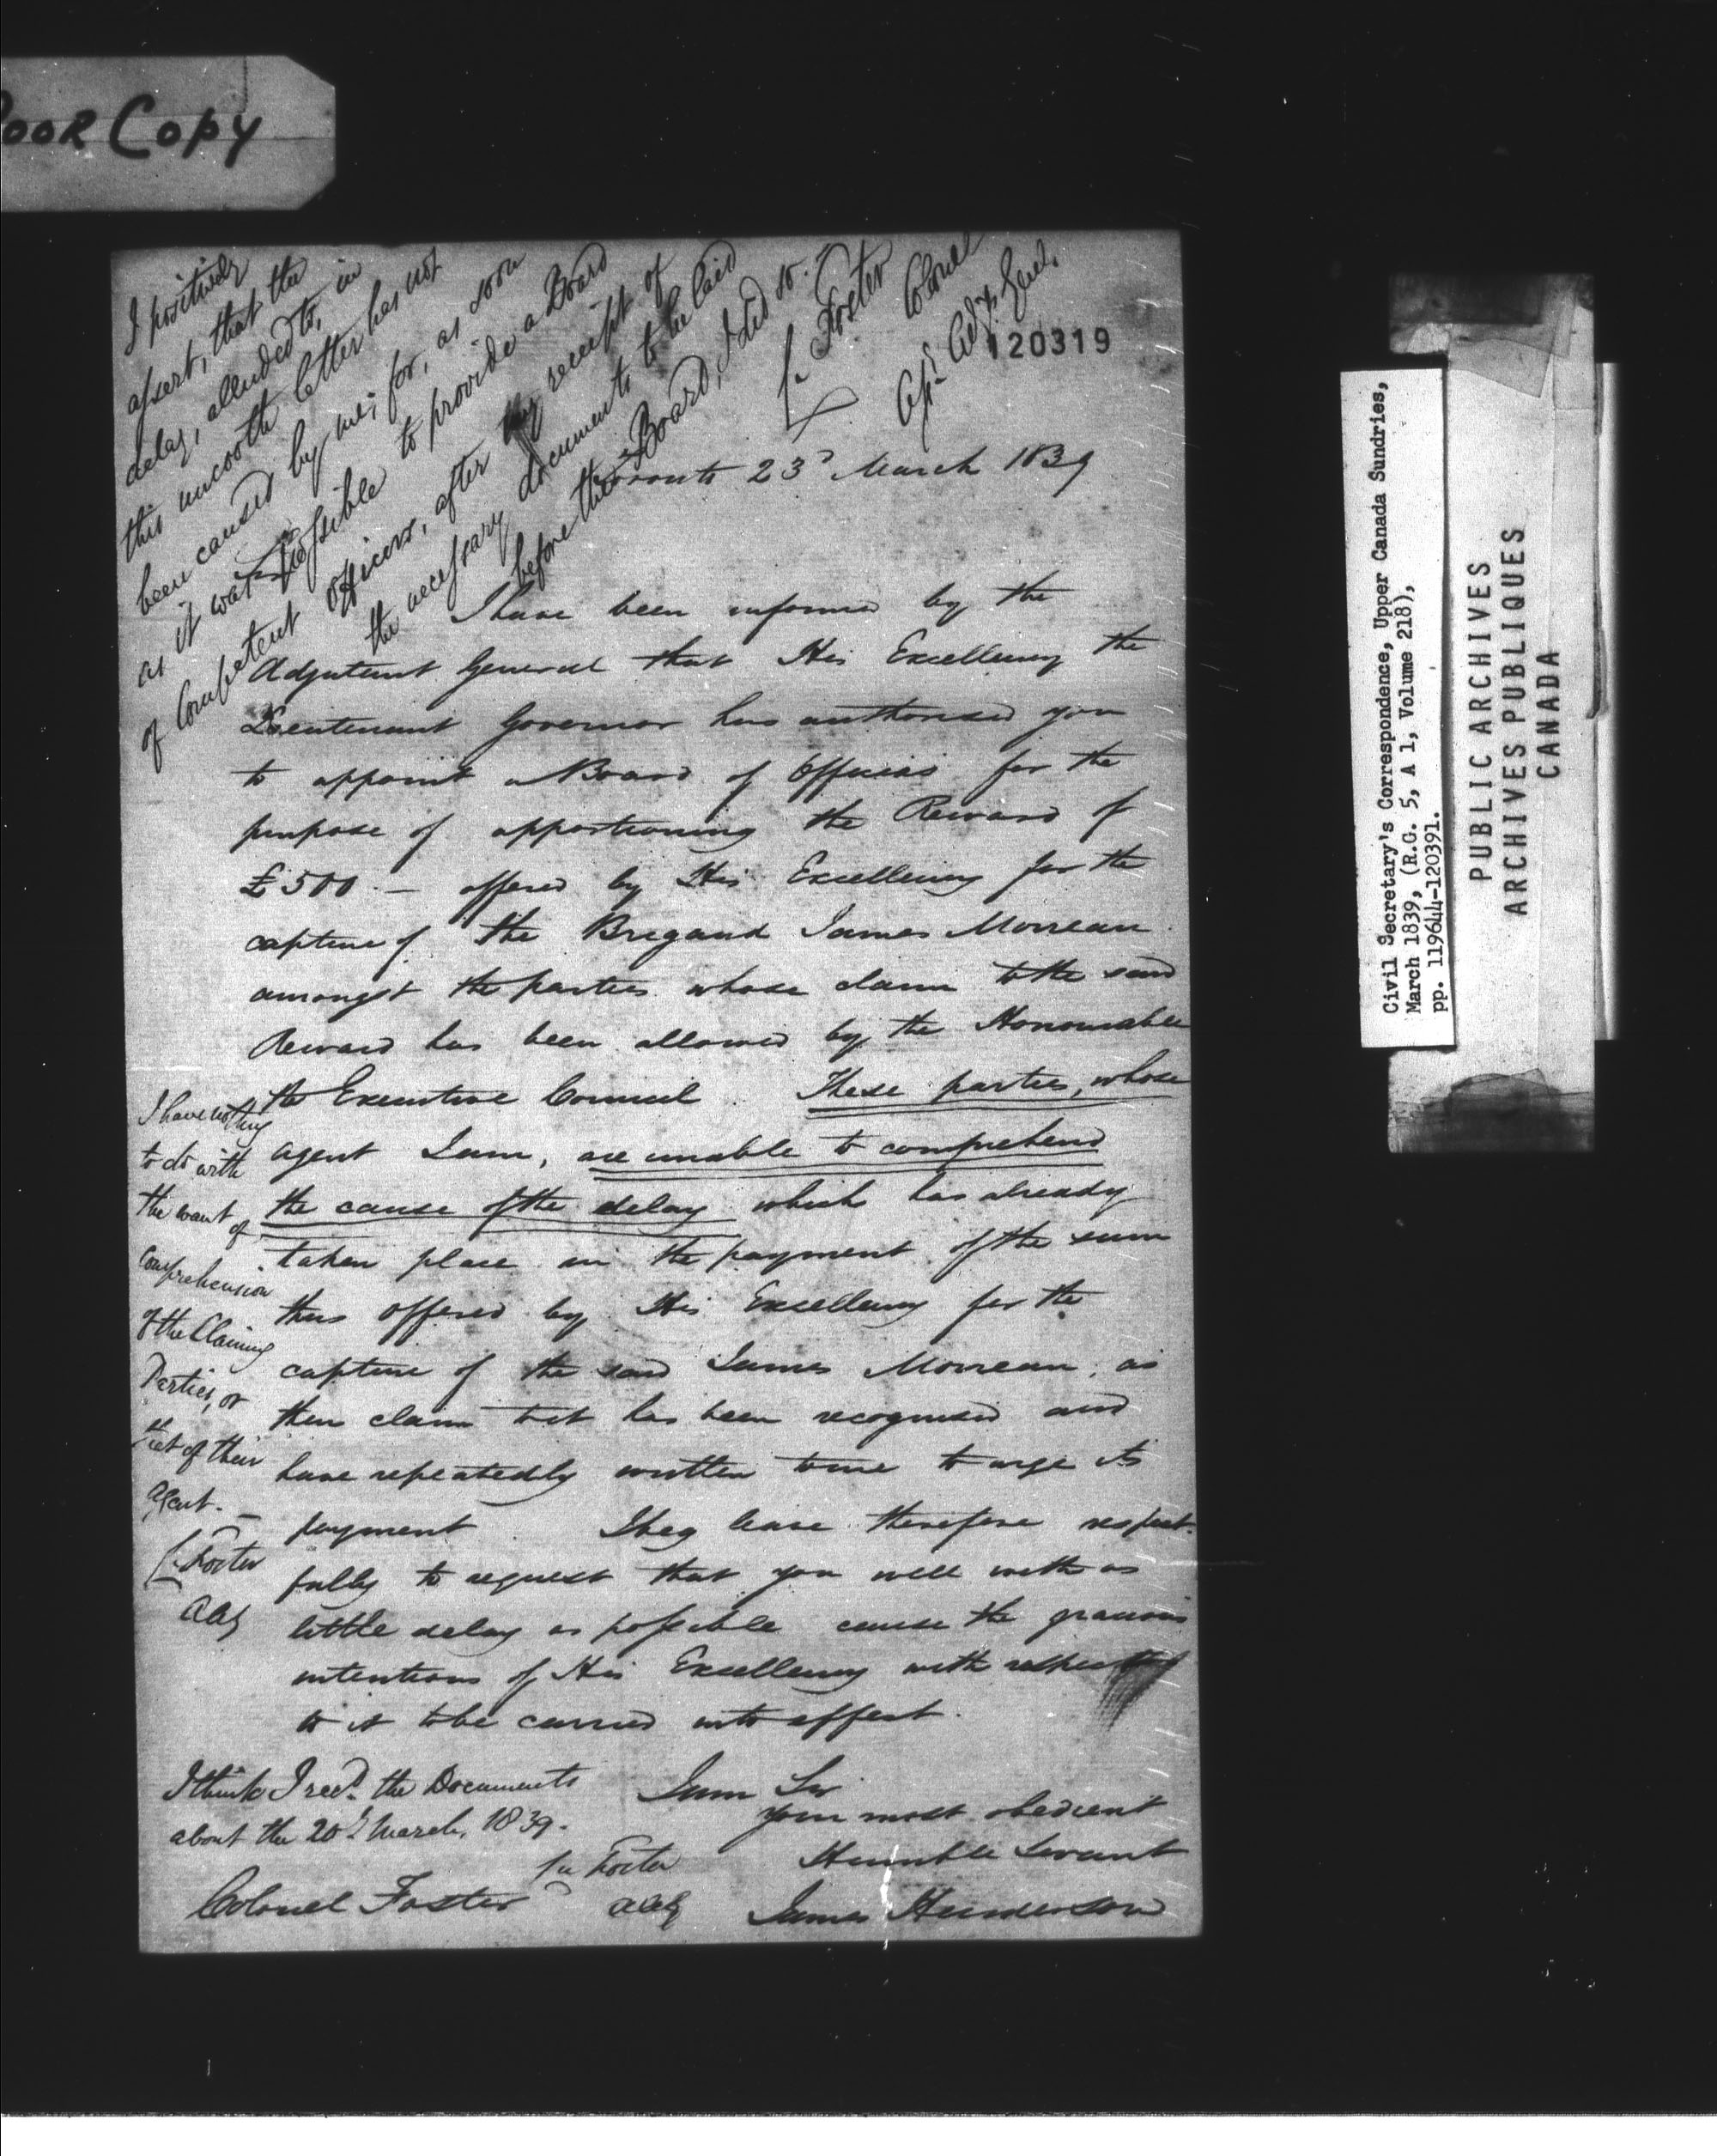 POOR COPY
I positively
assert, that the
delay, alluded to, in
this uncooth letter has not
been caused by me; for, as soon
as it was possible to provide a Board
of Competent officers, after my receipt of
the necessary documents to be laid
before the Board, I did so.
C. Foster
Colonel
Adjt. Genl.
120319
Toronto 23d March 1839
I have been informed by the
Adjutant General that His Excellency the
Lieutenant Governor has authorised you
to appoint a Board of Officers for the
purpose of apportioning the Reward of
£500.— offered by His Excellency for the
capture of the Brigand James Morreau
amongst the parties whose claim to the said
Reward has been allowed by the Honourable
the Executive Council These parties, whose
agent I am, are unable to comprehend
the cause of the delay which has already
taken place in the payment of the sum
thus offered by His Excellency for the
capture of the said James Morreau, as
their claim to it has been recognised and
have repeatedly written to me to urge its
payment I beg leave therefore respect-
fully to request that you will with as
little delay as possible cause the gracious
intentions of His Excellency with respect
to it to be carried into effect.
I have nothing
to do with
the want of
comprehension
of the Claiming
Parties, or
of their
Agent.—
C. Foster
AAG
I am Sir
Your most obedient
Humble Servant
James Henderson
I think I recd. the Documents
about the 20th March, 1839.
C. Foster
AAG
Colonel Foster
Civil Secretary's Correspondence, Upper Canada Sundries,
March 1839, (R.G. 5, A 1, Volume 218),
pp. 119644-120391.
PUBLIC ARCHIVES
ARCHIVES PUBLIQUES
CANADA